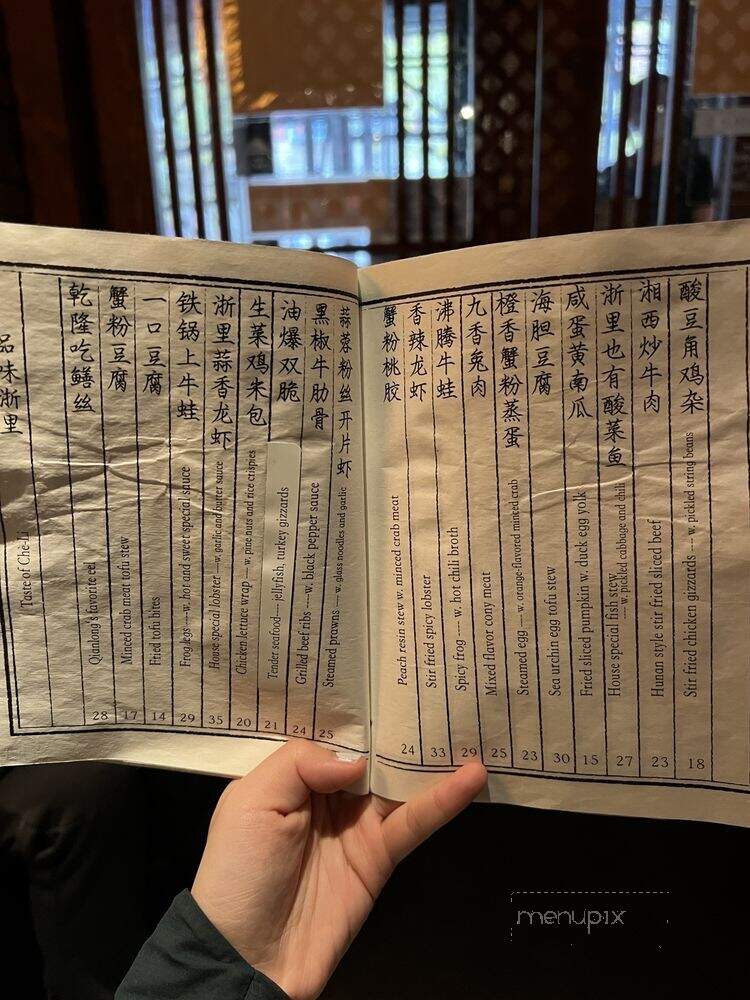 酸豆角鸡杂
Stir fried chicken gizzards --- w. pickled string beans
18
湘西炒牛肉
Hunan style stir fried sliced beef
23
浙里也有酸菜鱼
House special fish stew
--- w. pickled cabbage and chili
27
咸蛋黄南瓜
Fried sliced pumpkin w. duck egg yolk
15
海胆豆腐
Sea urchin egg tofu stew
30
橙香蟹粉蒸蛋
Steamed egg --- w. orange-flavored minced crab
23
九香兔肉
Mixed flavor cony meat
25
沸腾牛蛙
Spicy frog --- w. hot chili broth
29
香辣龙虾
Stir fried spicy lobster
33
蟹粉桃胶
Peach resin stew w. minced crab meat
24
蒜蓉粉丝开片虾
Steamed prawns --- w. glass noodles and garlic
25
黑椒牛肋骨
Grilled beef ribs --- w. black pepper sauce
24
油爆双脆
Tender seafood--- jellyfish, turkey gizzards
21
生菜鸡米包
Chicken lettuce wrap --- w. pine nuts and rice crispies
20
浙里蒜香龙虾
House special lobster ---w. garlic and butter sauce
35
铁锅上牛蛙
Frog legs --- w. hot and sweet special sauce
29
一口豆腐
Fried tofu bites
14
蟹粉豆腐
Minced crab meat tofu stew
17
乾隆吃鳝丝
Qianlong's favorite eel
28
品味浙里
Taste of Che-Li
menupix